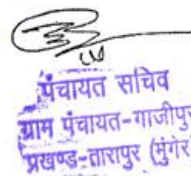 पंचायत सचिव
ग्राम पंचायत-गाजीपुर
प्रखण्ड-तारापुर (मुंगेर)